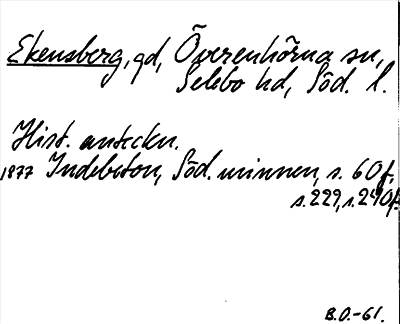 Ekensberg, gd, Överenhörna sn,
Selebo hd, Söd. l.
Hist. anteckn.
1877 Indebetou, Söd. minnen, s. 60f,
s. 229, s. 240f.
B.O.-61.